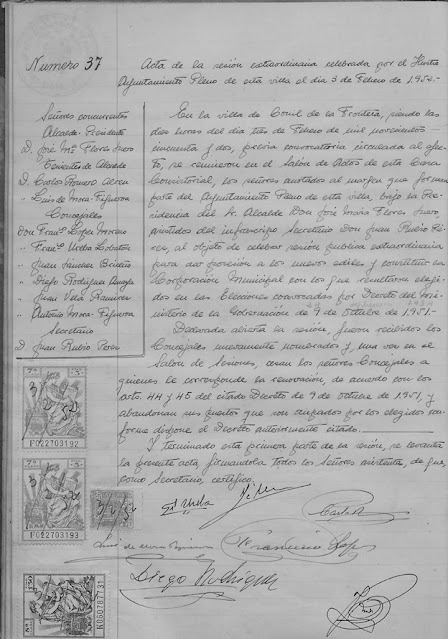 Numero 37
Acta de la sesión extraordinaria celebrada por el Iltmo
Ayuntamiento Pleno de esta villa el día 3 de Febrero de 1.952.-
Señores concurrentes
Alcalde-Presidente
D. José Mª Flores
Tenientes de Alcalde
D. Carlos Romero Abreu
" Luis de Mora-Figueroa
Concejales
Don Franº Lopez Moreno
" Franº Ureba
" Juan Sanchez
" Diego Rodriguez
" Juan Vela Ramirez
" Antonio Mora-Figueroa
Secretario
D. Juan Rubio Perez
En la villa de Conil de la Frontera, siendo las
diez horas del día tres de Febrero de mil novecientos
cincuenta y dos, previa convocatoria circulada al efec-
to, se reunieron en el Salón de Actos de esta Casa
Consistorial, los señores anotados al margen que forman
parte del Ayuntamiento Pleno de esta villa, bajo la Pre-
sidencia del Sr. Alcalde Don José María Flores
asistidos del infrascripto Secretario Don Juan Rubio Pé-
rez, al objeto de celebrar sesión publica extraordinaria
para dar posesión a los nuevos ediles y constituir la
Corporación Municipal con los que resultaron elegi-
dos en las Elecciones convocadas por Decreto del Mi-
nisterio de la Gobernación de 9 de Octubre de 1.951.-
Declarada abierta la sesión, fueron recibidos los
Concejales nuevamente nombrados y una vez en el
Salón de Sesiones, cesan los señores Concejales a
quienes le corresponde la renovación, de acuerdo con los
artos. 44 y 45 del citado Decreto de 9 de Octubre de 1951, y
abandonan sus puestos que son ocupados por los elegidos con-
forme dispone el Decreto anteriormente citado.
Y terminado esta primera parte de la sesión, se levanta
la presente acta firmandola todos los Señores asistente, de que,
como Secretario, certifico.
7ª
7ª
F022703192
7ª
7ª
F022703193
8ª
1'50
K060787731
Francisco Lopez
Diego Rodriguez